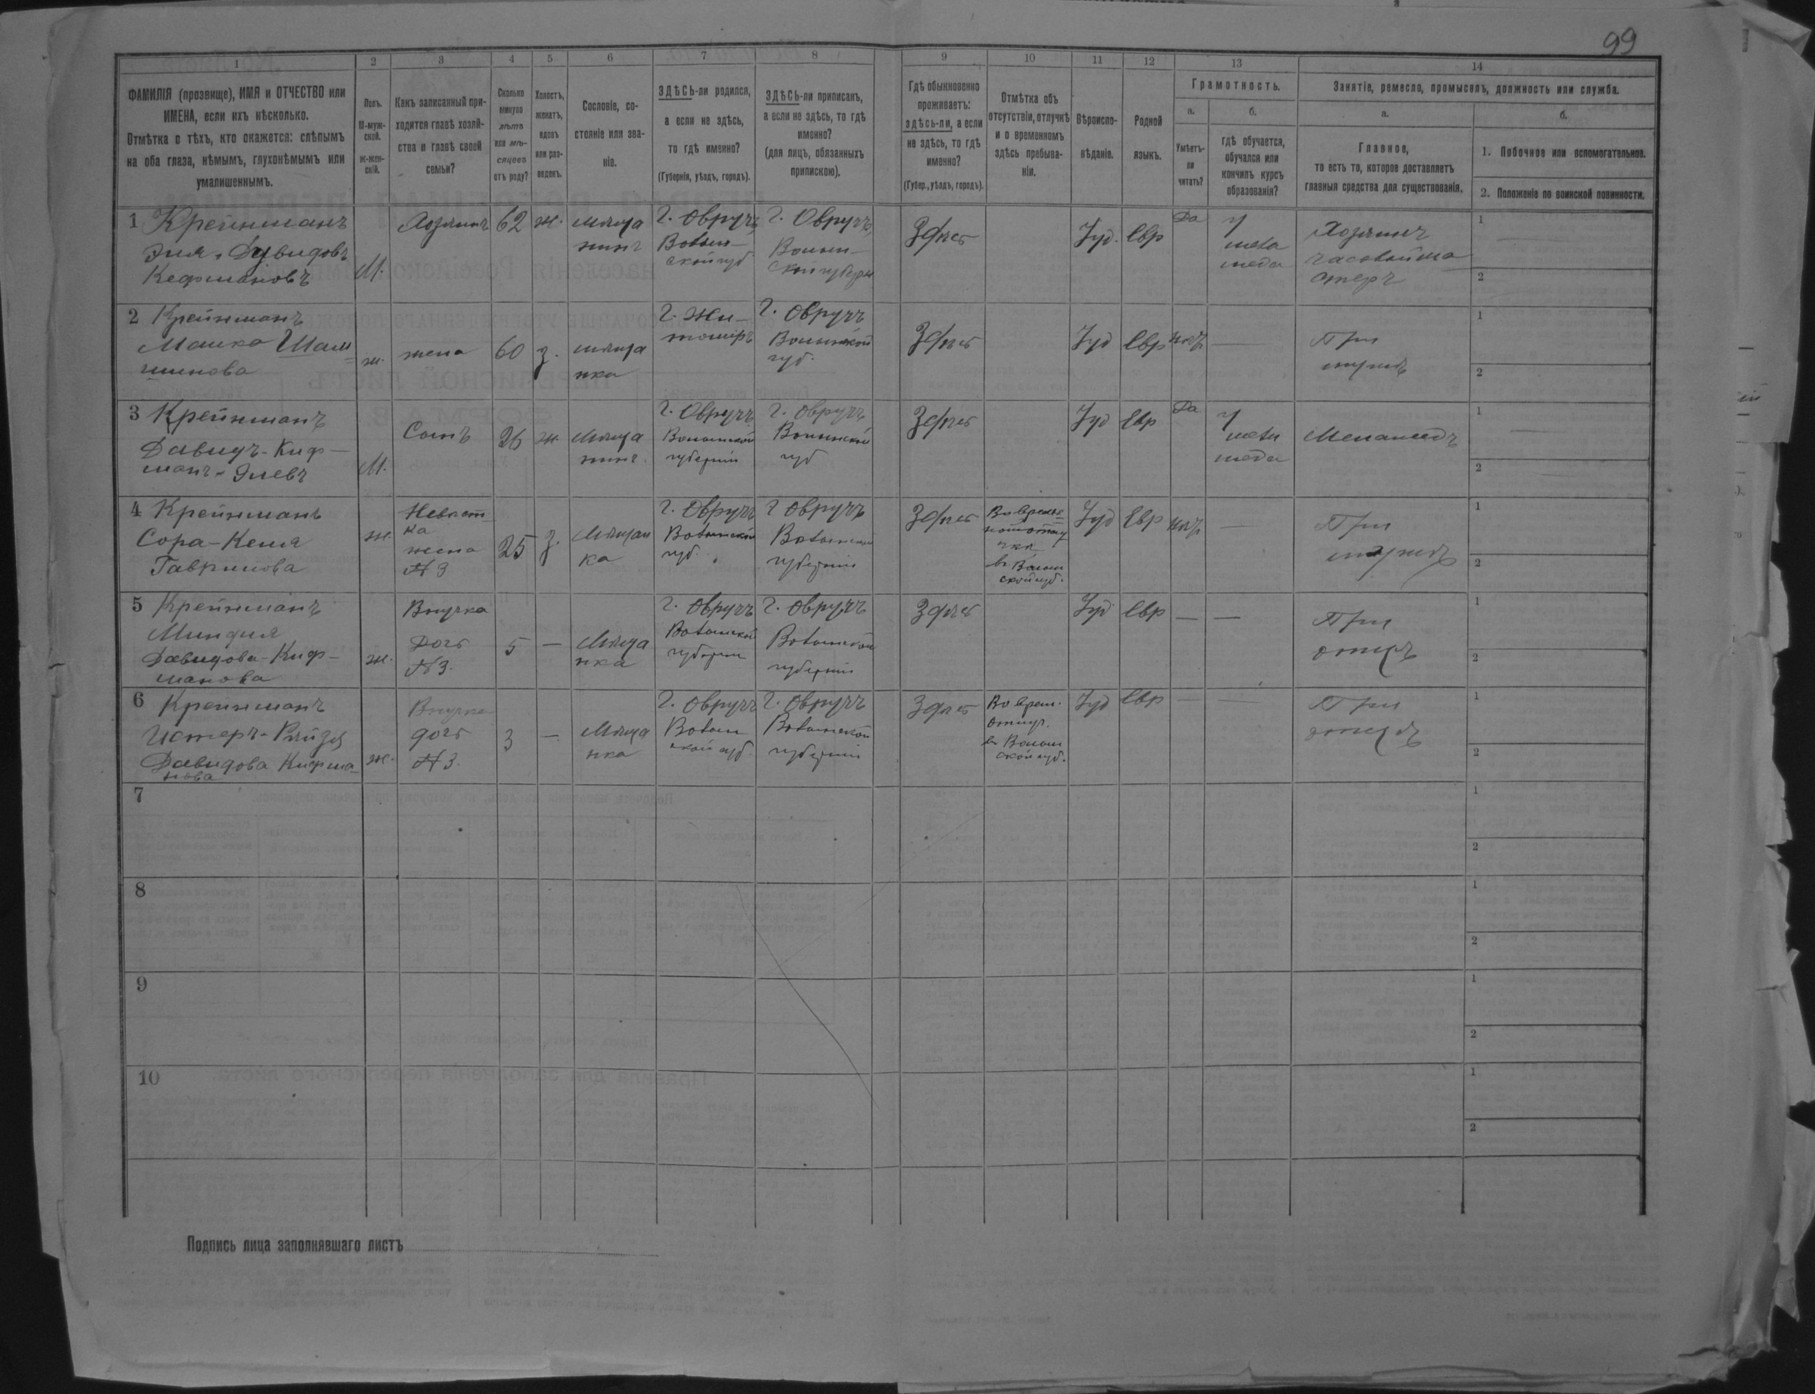 99
1 2 3 4 5 6 7 8 9 10 11 12 13 14
ФАМИЛІЯ (прозвище), ИМЯ и ОТЧЕСТВО или
ИМЕНА, если ихъ нѣсколько.
Отмѣтка о тѣхъ, кто окажется: слѣпымъ
на оба глаза, нѣмымъ, глухонѣмымъ или
умалишеннымъ.
Полъ.
М-муж-
ской.
ж-жен-
скій.
Какъ записанный при-
ходится главѣ хозяй-
ства и главѣ своей
семьи?
Сколько
минуло
лѣтъ
или мѣ-
сяцевъ
отъ роду?
Холостъ,
женатъ,
вдовъ
или раз-
веденъ.
Сословіе, со-
стояніе или зва-
ніе.
ЗДѢСЬ-ли родился,
а если не здѣсь,
то гдѣ именно?
(Губернія, уѣздъ, городъ).
ЗДѢСЬ-ли приписанъ,
а если не здѣсь, то гдѣ
именно?
(для лицъ, обязанныхъ
припискою).
Гдѣ обыкновенно
проживаетъ:
здѣсь-ли, а если
не здѣсь, то гдѣ
именно?
(Губер., уѣздъ, городъ).
Отмѣтка объ
отсутствіи, отлучкѣ
и о временномъ
здѣсь пребыва-
ніи.
Вѣроиспо-
вѣданіе.
Родной
языкъ.
Грамотность.
а.
Умѣетъ-
ли
читать?
б.
гдѣ обучается,
обучался или
кончилъ курсъ
образованія?
Занятіе, ремесло, промыселъ, должность или служба.
а.
Главное,
то есть то, которое доставляетъ
главныя средства для существованія.
б.
1. Побочное или вспомогательное.
2. Положеніе по воинской повинности.
1 Крейнманъ
Эля-Давидовъ
М.
Хозяинъ
62
ж.
мѣща
нинъ
г. Овручъ
Волын-
ской губ
г. Овручъ
Волын-
ской губерн
Здѣсь
Іуд.
Евр
Да
у
мела
меда
Хозяинъ
часовой ма
стеръ
1
2
2 Крейнманъ
ж.
жена
60
з.
мѣща
нка
г. Жи-
томіръ
г. Овручъ
Волынской
губ.
Здѣсь
Іуд
Евр
нѣтъ
При
мужѣ
1
2
3 Крейнманъ
Давидъ-Киф-
манъ-Элевъ
М.
Сынъ
26
ж.
Мѣща
нинъ.
г. Овручъ
Волынской
губерніи
г. Овручъ
Волынской
губ
Здѣсь
Іуд
Евр
Да
у
мела
меда
Меламедъ
1
2
4 Крейнманъ
Сора-Кейля
Гаврилова
ж.
Невѣст-
ка
жена
№3
25
з.
Мѣщан
ка
г. Овручъ
Волынской
губ.
г Овручъ
Волынской
губерніи
Здѣсь
Во време-
ной отлу
чкѣ
въ Волын
ской губ.
Іуд
Евр
нѣтъ
При
мужѣ
1
2
5 Крейнманъ
Миндля
Давидова-Киф-
манова
ж.
Внучка
дочь
№3.
5
—
Мѣща
нка
г. Овручъ
Волынской
губерніи
г. Овручъ
Волынской
губерніи
Здѣсь
Іуд
Евр
— —
При
отцѣ
1
2
6 Крейнманъ
Эстеръ-Рейзя
Давидова Кифма-
нова
ж.
Внучка
дочь
№3.
3
—
Мѣща
нка
г. Овручъ
Волын
ской губ
г. Овручъ
Волынской
губерніи
Здѣсь
Во врем.
отлуч.
въ Волын
ской губ.
Іуд
Евр
— —
При
отцѣ
1
2
7
1
2
8
1
2
9
1
2
10
1
2
Подпись лица заполнявшаго листъ